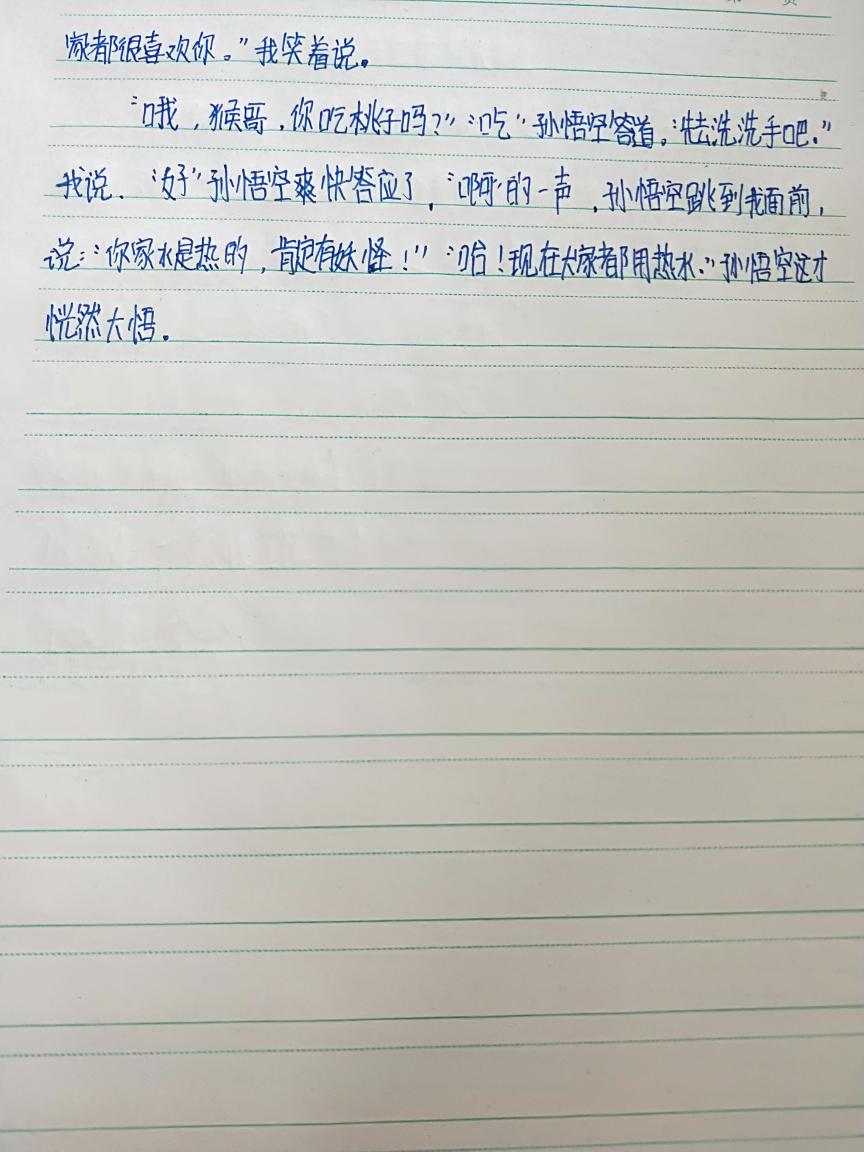 家都很喜欢你。”我笑着说。
“哦，猴哥，你吃桃子吗？”“吃”孙悟空答道。“先去洗洗手吧。”
我说．“好”孙悟空爽快答应了．“啊”的一声，孙悟空跳到我面前，
说：“你家水是热的，肯定有妖怪！”“咍！现在大家都用热水．”孙悟空这才
恍然大悟。